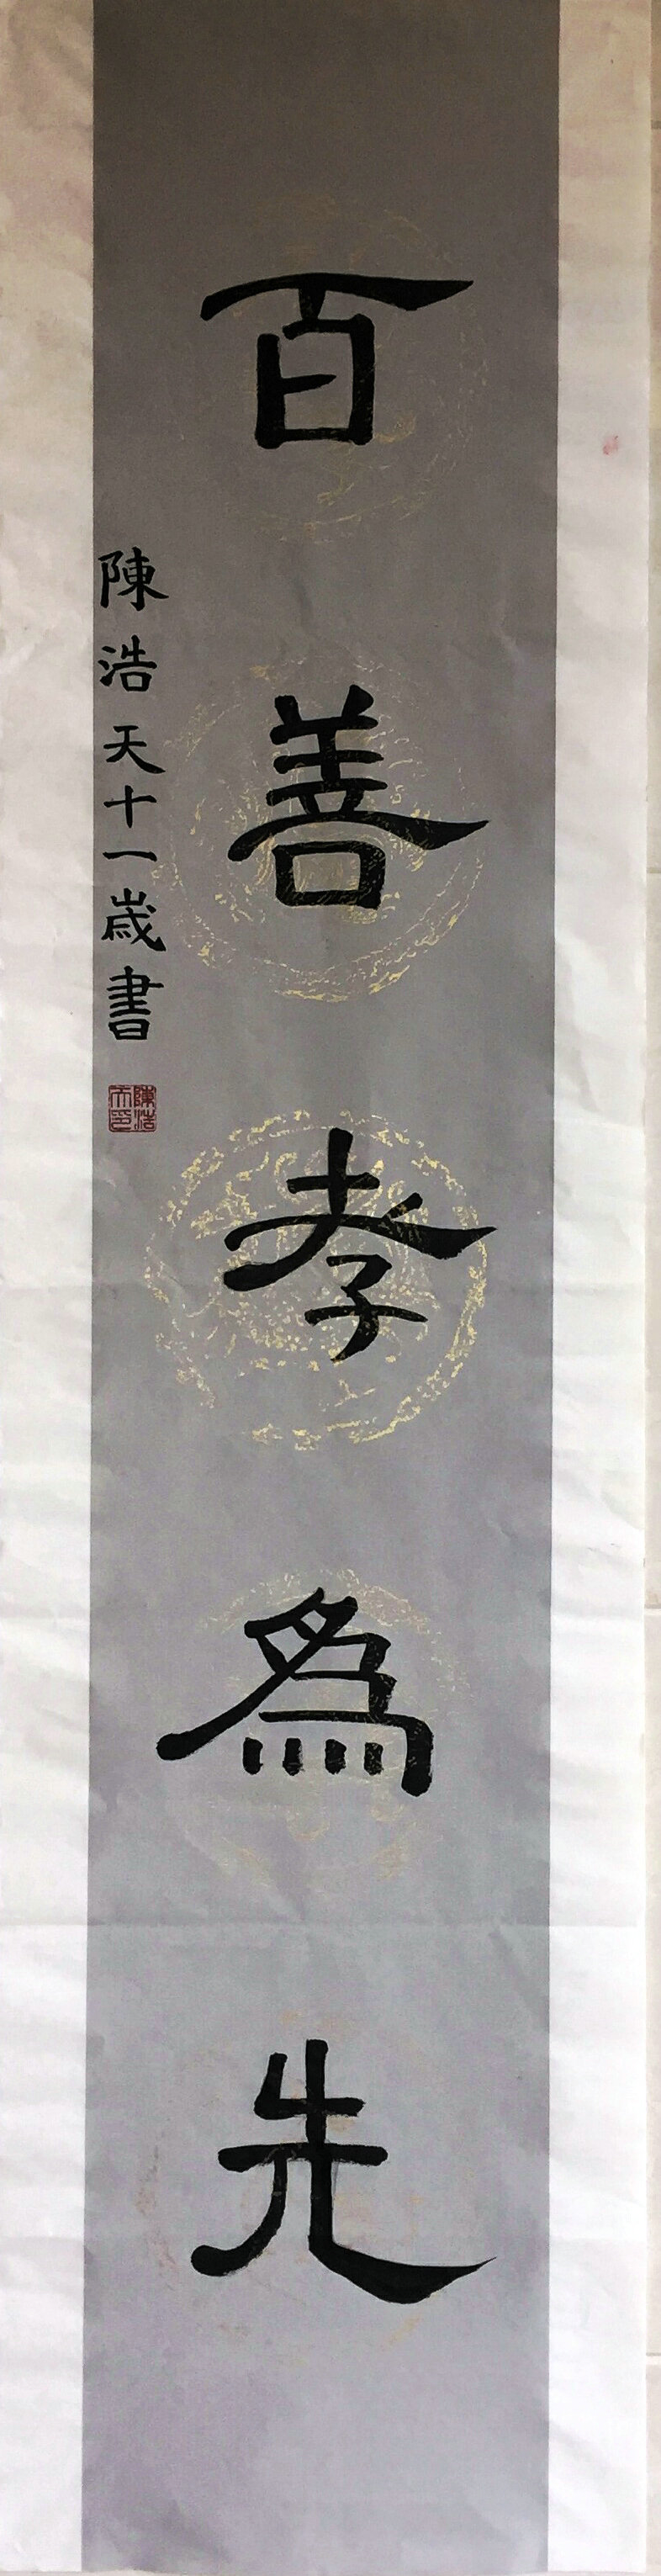 百善孝為先
陳浩天十一歲書
陳浩
天印